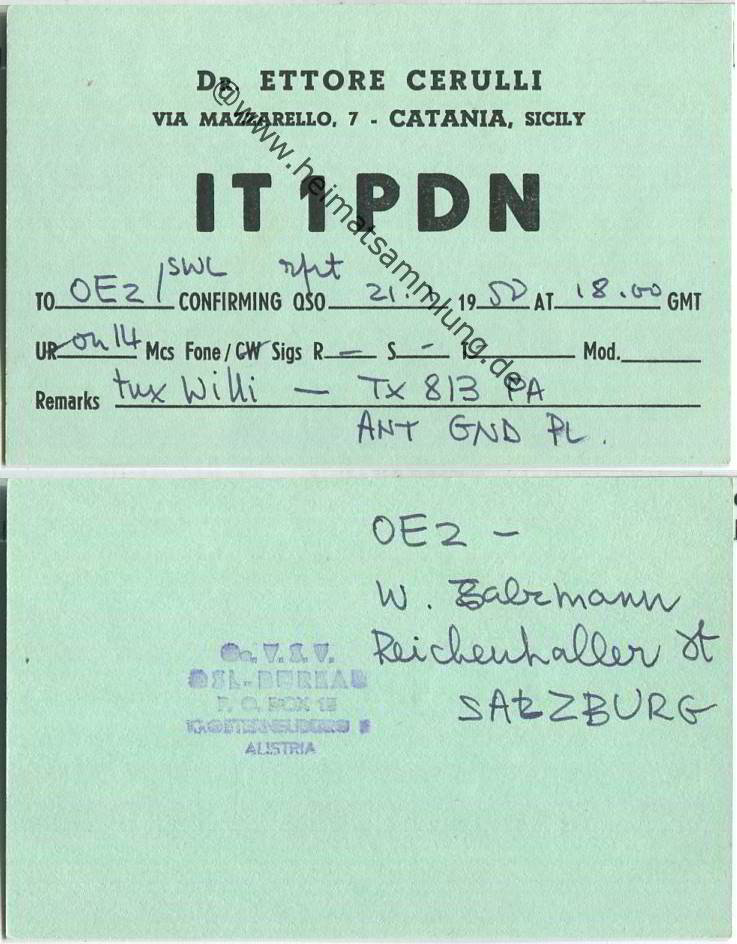 Dr. ETTORE CERULLI
VIA MAZZARELLO, 7 - CATANIA, SICILY
@www.heimatsammlung.de
IT1PDN
TO OE2/SWL CONFIRMING QSO rprt 21. 19 50 AT 18.00 GMT
UR on 14 Mcs Fone/CW Sigs R - S - T Mod.
Remarks tux Willi — TX 813 PA
ANT GND PL.
OE2 -
W.
Reichenhaller St
SALZBURG
Oe. V. S. V.
QSL-BUREAU
P. O. BOX
AUSTRIA